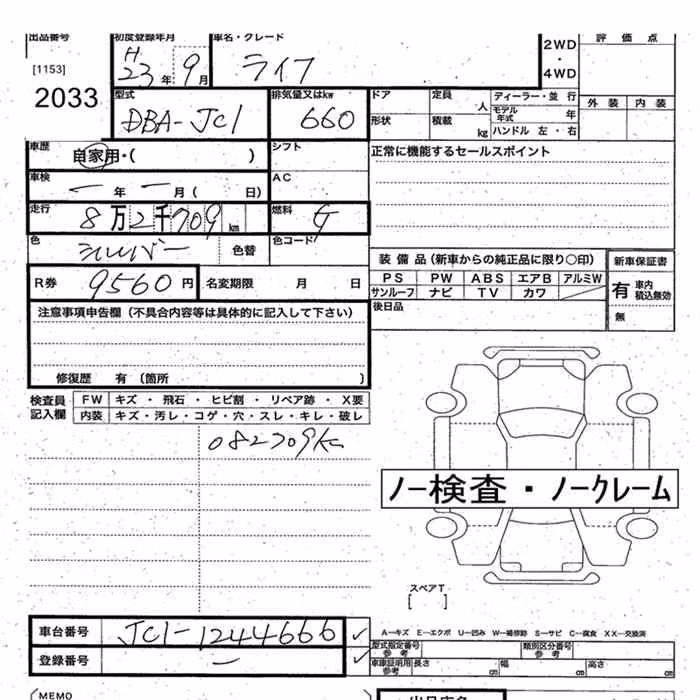 出品番号 初度登録年月 車名・グレード 2WD・4WD 評価点
[1153] H23年 9月 ライフ
2033 型式 排気量又はkw ドア 定員 人 ディーラー・並行 外装 内装
DBA-JC1 660 形状 積載 kg モデル年式 年
ハンドル 左・右
車歴 自家用・( ) シフト 正常に機能するセールスポイント
車検 ー年 ー月( 日) AC
走行 8万2千709km 燃料 G
色 シルバー 色替 色コード 装備品(新車からの純正品に限り○印) 新車保証書
R券 9560円 名変期限 月 日 PS PW ABS エアB アルミW 有 車内積込無効
サンルーフ ナビ TV カワ
後日品 無
注意事項申告欄(不具合内容等は具体的に記入して下さい)
修復歴 有(箇所 )
検査員記入欄 FW キズ・飛石・ヒビ割・リペア跡・X要
内装 キズ・汚レ・コゲ・穴・スレ・キレ・破レ
082709K
ノー検査・ノークレーム
スペアT
[ ]
車台番号 JC1-1244666 ✓ A—キズ E—エクボ U—凹み W—補修跡 S—サビ C—腐食 XX—交換済
型式指定番号 参考 類別区分番号 参考
登録番号 ー ✓ 車庫証明用 参考 長さ cm 幅 cm 高さ cm
MEMO 出品店名